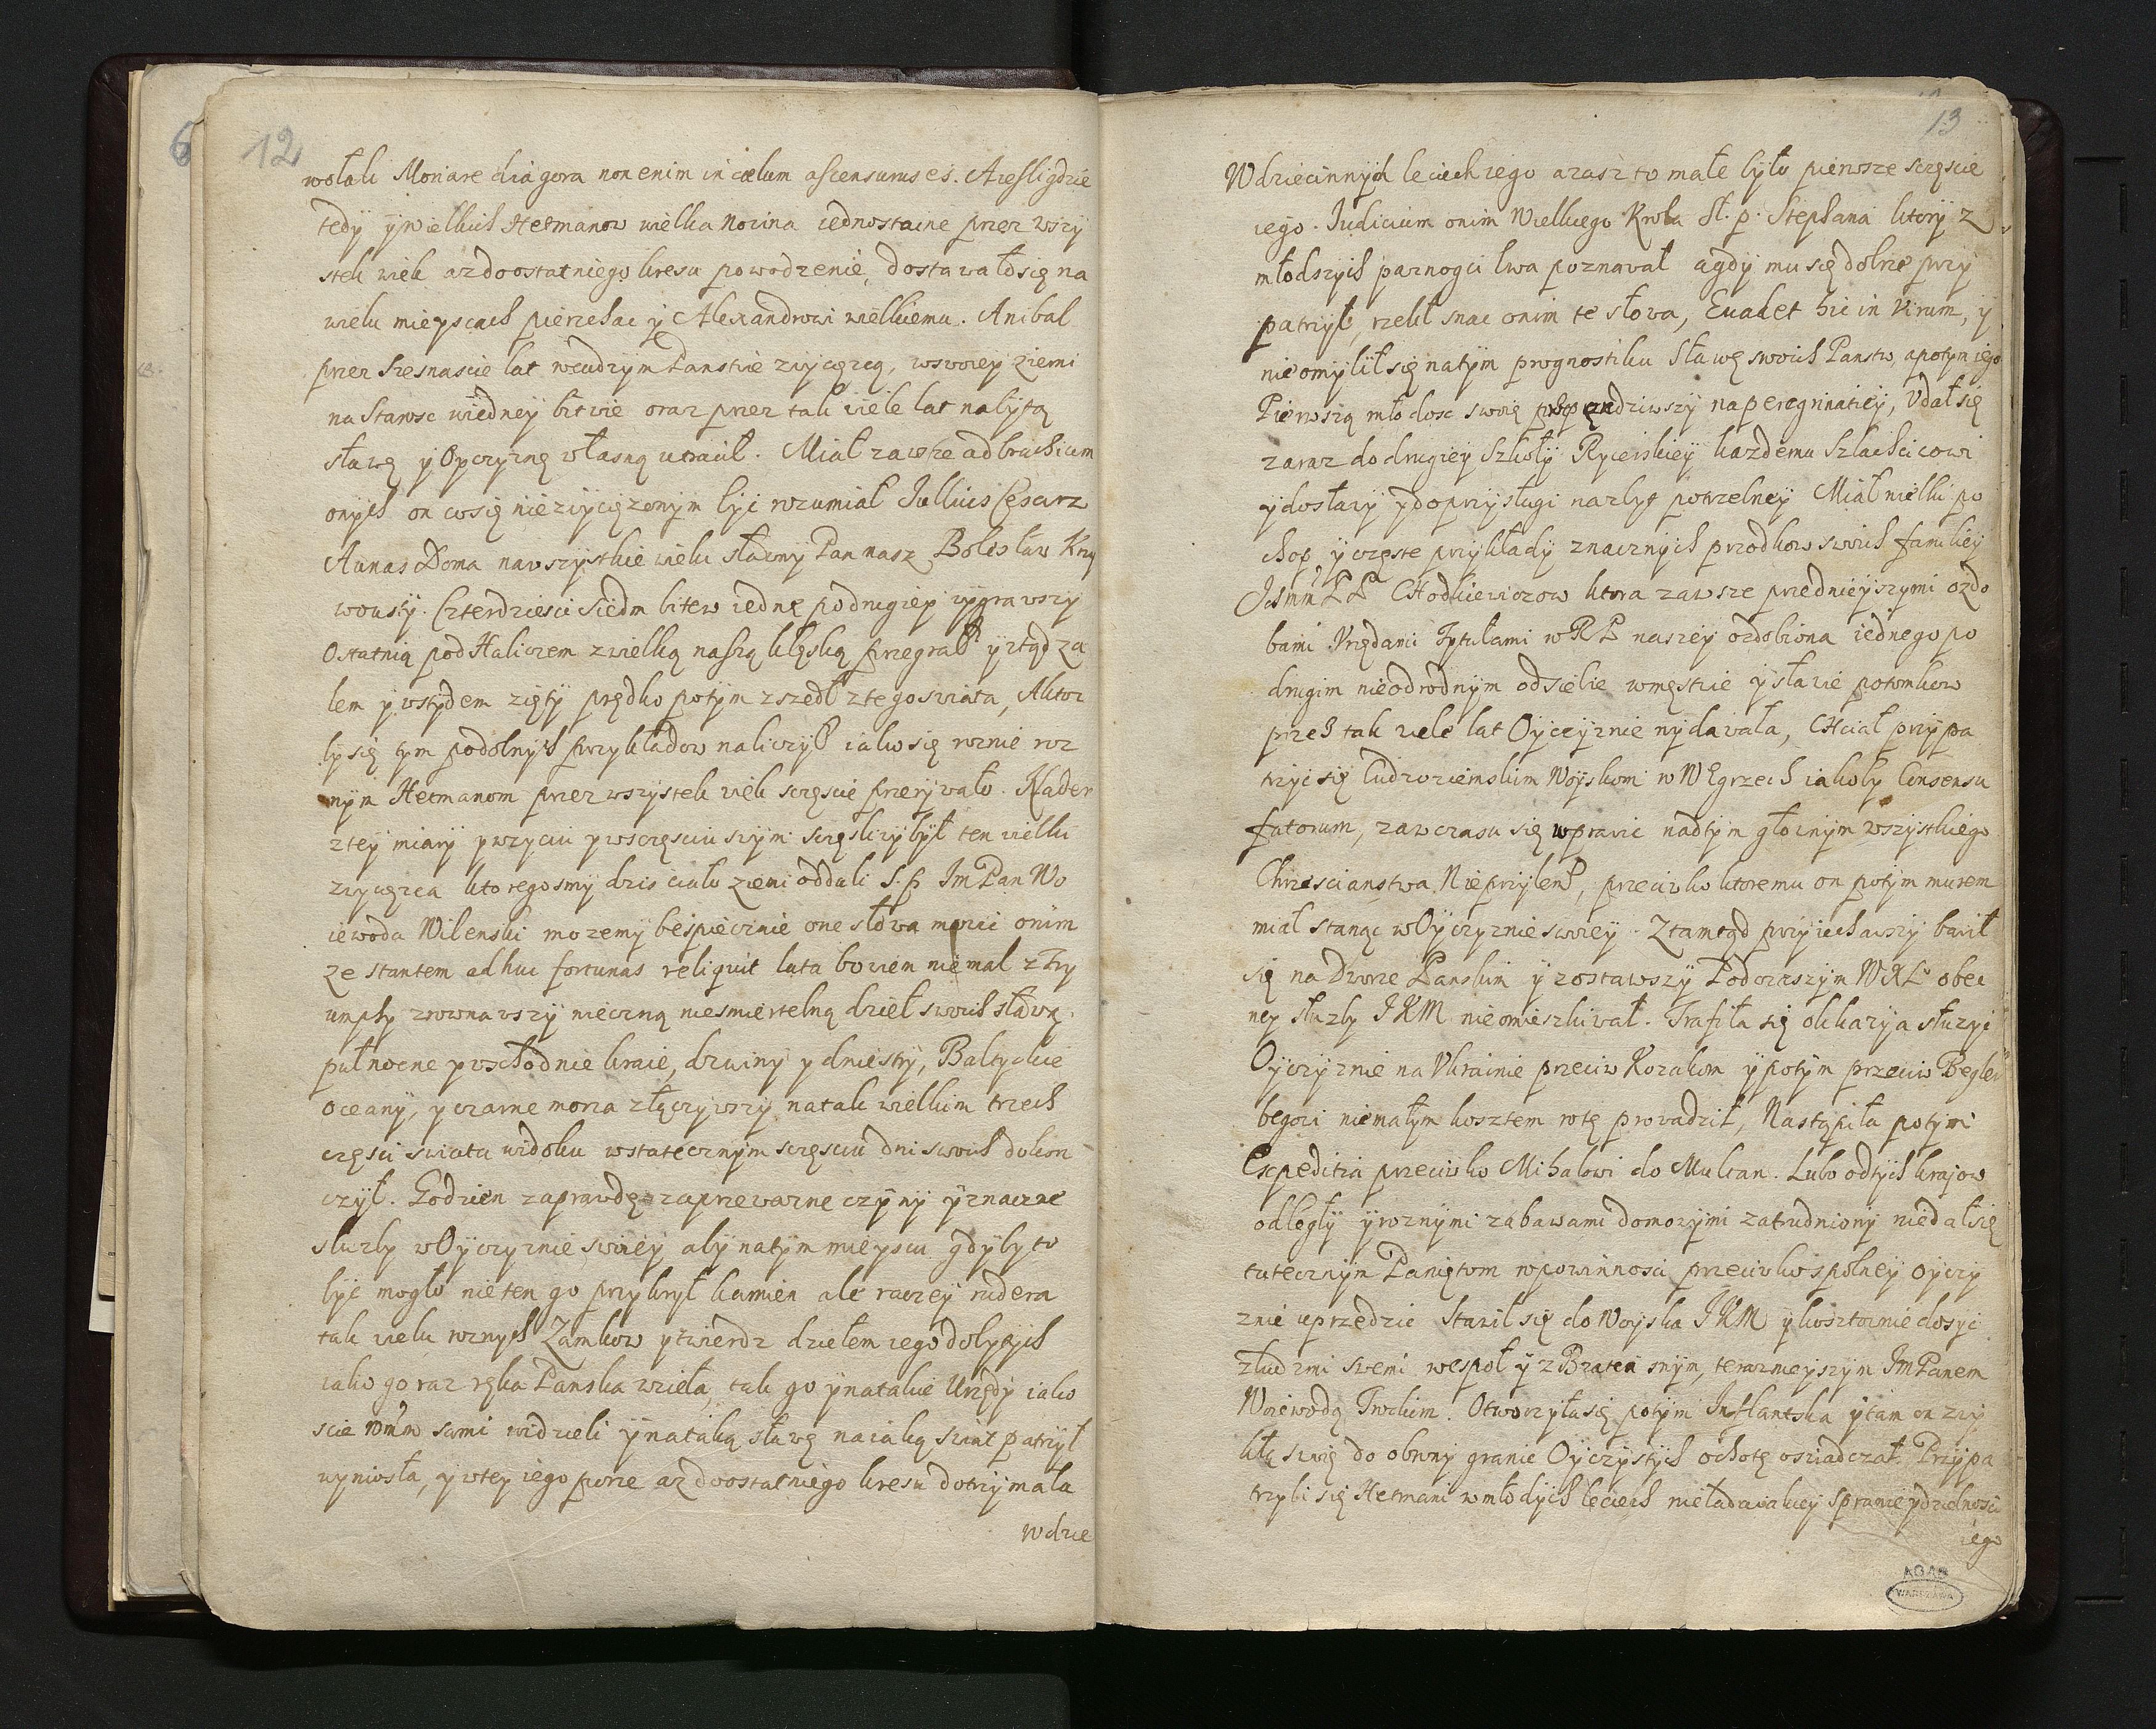 12
wołali Monare diagora non enim in cælum ascensurus es. A iesli gdzie
tedy y wielkich Hetmanow wielka nowina iednostaine przez wszy
stek wiek az do ostatniego kresu powodzenie, dostawało się na
wielu mieyscach pierzchac y Alexandrowi wielkiemu. Anibal
przez szesnascie lat w cudzym Panstwie zwycęzcą, w swoiey ziemi
na Starosc w iedney bitwie oraz przez tak wiele lat nabytą
sławę y Oyczyznę własną utracił. Miał zawsze ad brachium
onych on co się niezwycięzonym być rozumiał Jullius Cesarz
A u nas Doma na wszystkie wieki sławny Pan nasz Bolesław Krzy
wousty. Czterdziesci siedm bitew iednę po drugiey wygrawszy
Ostatnią pod Haliczem z wielką naszą klęską przegrał y ztąd za
lem y wstydem zięty prędko potym zszedł z tego swiata, A ktoz
by się tym podobnych przykładow naliczył iako się roznie roz
nym Hetmanom przez wszystek wiek szczęscie przerywało. Nader
z tey miary y w zyciu y w szczęsciu swym sczęsliwy był ten wielki
zwycęzca ktoregosmy dzis ciało ziemi oddali S. p. Jm Pan Wo
iewoda Wilenski mozemy bespiecznie one słowa mowic o nim
ze stantem adhuc fortunas reliquit lata bowiem niemal z Try
umphy zrownawszy wieczną niesmiertelną dzieł swoich sławę.
pułnocne y wschodnie kraie, dzwiny y dniestry, Baltyckie
Oceany, y czarne morza złączywszy na tak wielkim trzech
częsci swiata widoku w statecznym sczęsciu dni swoich dokon
czył. Godzien zaprawdę za przewazne czyny y znaczne
słuzby w Oyczyznie swoiey aby na tym mieyscu gdyby to
być mogło nie ten go przykrył kamien ale raczey rudera
tak wielu roznych Zamkow y twierdz dziełem iego dobytych
iako go raz ręka Panska wzieła, tak go y na takie Urzędy iako
scie wmm sami widzieli y na taką sławę na iaką swiat patrzył
wyniosła, y w tey iego porze az do ostatniego kresu dotrzymała
w dzie
13
W dziecinnych leciech iego a zasz to małe było pierwsze sczęscie
iego. Iudicium o nim Wielkiego Krola Sł. p. Stephana ktory z
młodszych paznogci lwa poznawał a gdy mu się dobrze przy
patrzył, rzekł snac o nim te słowa, Euadet hic in Virum, y
nie omylił się na tym prognostiku Sławę swoich Panstw, a potym iego
Pierwszą młodosc swoię przepędziwszy na peregrinatiey, Udał się
zaraz do drugiey Szkoły Rycerskiey kazdemu Szlachcicowi
y do sławy y do przysługi na zbyt potrzebney Miał wielki po
chop y częste przykłady znacznych przodkow swoich familiey
Jchmm PP CHodkiewiczow ktora zawsze przednieyszymi ozdo
bami Urzędami Tytułami w RP naszey ozdobiona iednego po
drugim nieodrodnym od siebie w męstwie y sławie potomkow
przes tak wiele lat Oyczyznie wydawała, CHciał przypa
trzyc się Cudzoziemskim Woyskom w Węgrzech iakoby Consensu
fatorum, zawczasu się wprawic nad tym głownym wszystkiego
Chrzescianstwa Nieprzylem, przeciwko ktoremu on potym murem
miał stanąc w Oyczyznie swoiey. Ztamtąd przyiechawszy bawił
się na Dworze Panskim y zostawszy Podczaszym WXL obec
ney słuzby JKM nieomieszkiwał. Trafiła się okkazya słuzyc
Oyczyznie na Ukrainie przeciw Kozakom y potym przeciw Begler
begowi niemałym kosztem rotę prowadził, Nastąpiła potym
Expeditia przeciwko Mihałowi do Multan. Lubo od tych krajow
odłogły y roznymi zabawami domowymi zatrudniony niedał się
tutecznym Paniętom w powinnosci przeciwko spolney oyczy
znie uprzedzic Stawił się do Woyska JKM y kosztownie dosyc
z ludzmi swemi wespoł y z Bratem swym, terazneyszym Jm Panem
Woiewodą Trockim. Otworzyła się potym Inflantska y tam on zwy
kłą swoię do obrony granic Oyczystych ochotę oswiadczał. Przypa
trzyli się Hetmani w młodych leciech nieladaiakiey sprawie y dzielnosci
iego
AGAD
WARSZAWA